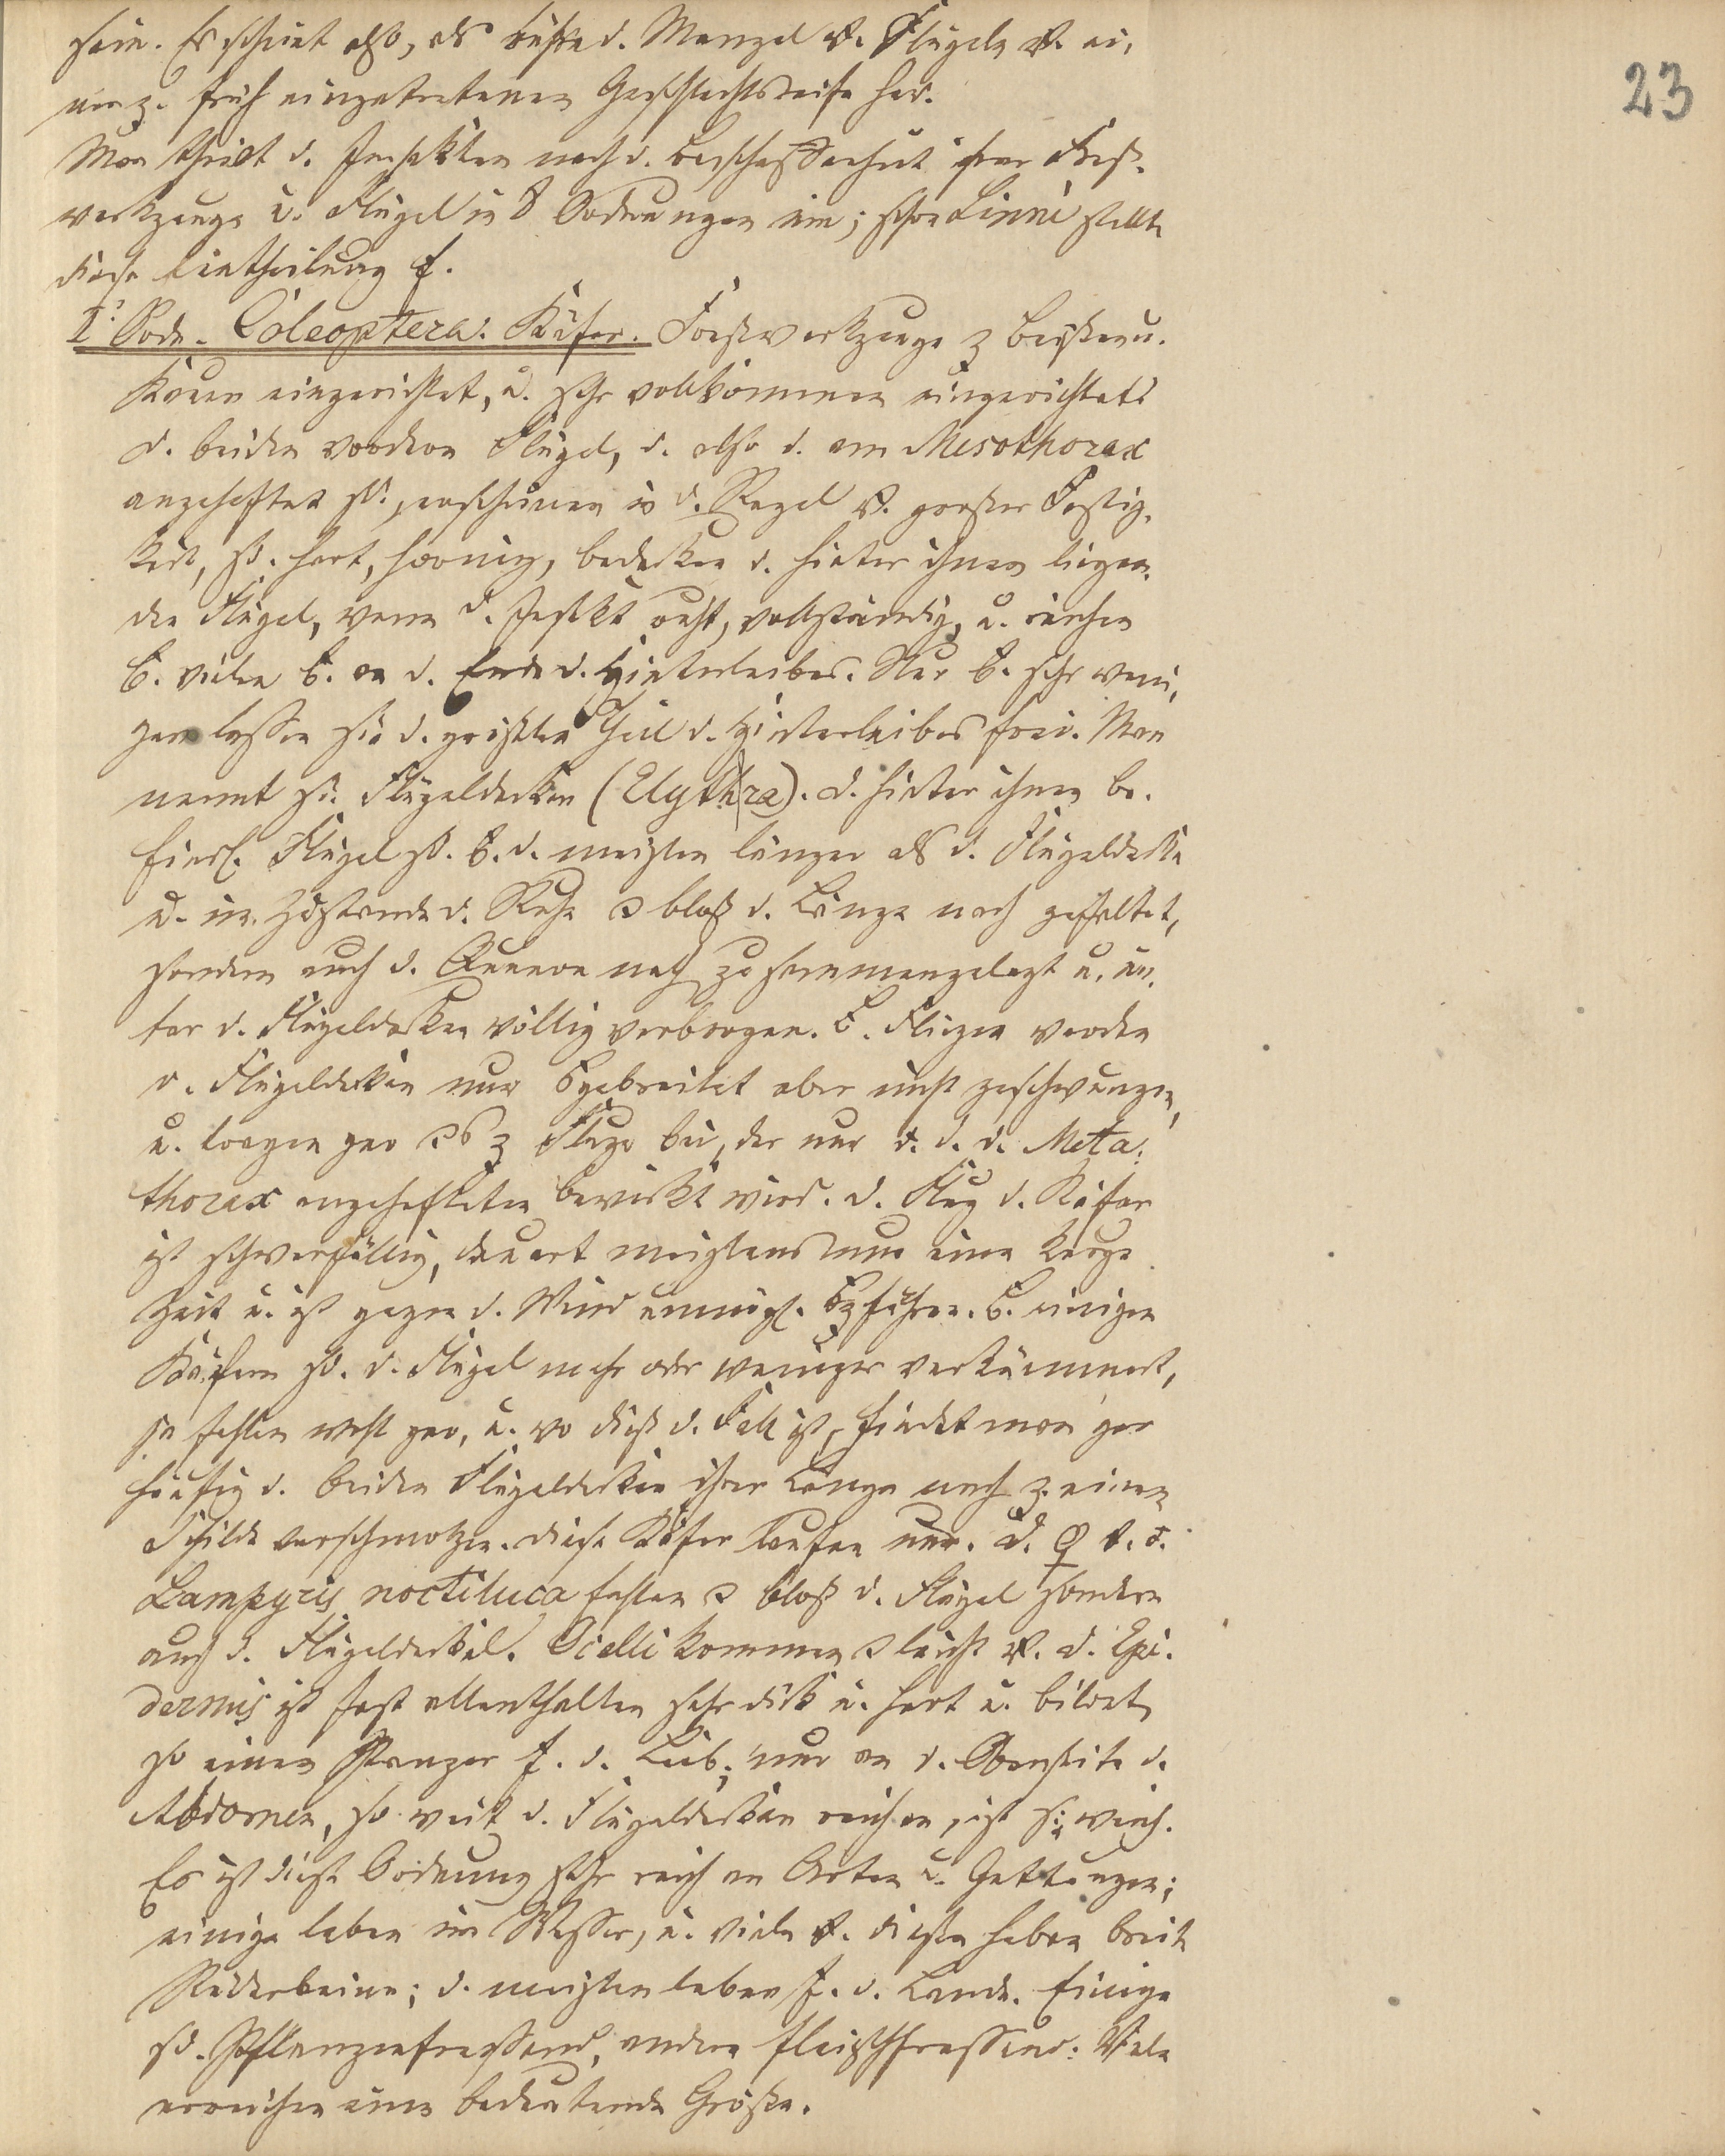 sein. Es scheint also, als rühre d. Mangel v. Flügeln v. ei-
ner z. früh eingetretenen Geschlechtsreife her.
23
Man theilt d. Insekten nach d. Beschaffenheit ihrer Freß-
werkzeuge u. Flügel in 8 Ordnungen ein; schon Linné stellte
diese Eintheilung f.
I. Ordn. Coleoptera: Käfer. Freßwerkzeuge z Beißen u.
Kauen eingerichtet, u. sehr vollkommen eingerichtet:
d. beiden vorderen Flügel, d. also d. am Mesothorax
angeheftet sd., erscheinen in d. Regel v. großer Festig-
keit, sd. hart, hornig, bedecken d. hinter ihnen liegen-
den Flügel, wenn d. Insekt ruht, vollständig, u. reichen
b. vielen b. an d. Ende d. Hinterleibes. Nur b. sehr weni-
gen lassen sie d. größten Theil d. Hinterleibes frei. Man
nennt sie Flügeldecken (Elythra). D. hinter ihnen be-
findl. Flügel sd. b. d. meisten länger als d. Flügeldecken
u. im Zustande d. Ruhe bloß d. Länge nach gefaltet,
sondern auch d. Queere nach zusammengelegt u. un-
ter d. Flügeldecken völlig verborgen. B. Fliegen werden
d. Flügeldecken nur ausgebreitet aber nicht geschwungen,
u. tragen gar z Fluge bei, der nur v. d. d. Meta-
thorax angehefteten bewirkt wird. D. Flug d. Käfer
ist schwerfällig, dauert meistens nur eine kurze
Zeit u. ist gegen d. Wind unmögl. auszuführen. B. einigen
Käfern sd. d. Flügel mehr oder weniger verkümmert,
ja fehlen wohl gar, u. wo dieß d. Fall ist, findet man gar
häufig d. beiden Flügeldecken ihrer Länge nach z. einem
Schilde verschmolzen. Diese Käfer laufen nur. D. ♀ v. d.
Lampyris noctiluca fehlen bloß d. Flügel sondern
auch d. Flügeldeckel. Ocelli kommen leicht v. D. Epi-
dermis ist fast allenthalben sehr dick u. hart u. bildet
so einen Panzer f. d. Leib; nur an d. Oberseite d.
Abdomen, so weit d. Flügeldecken reichen, ist sie weich.
Es ist diese Ordnung sehr reich an Arten u. Gattungen;
einige leben im Wasser, u. viele v. diesen haben breite
Ruderbeine; d. meisten leben f. d. Lande. Einige
sd. Pflanzenfressend, andere fleischfressend. Viele
erreichen eine bedeutende Größe.